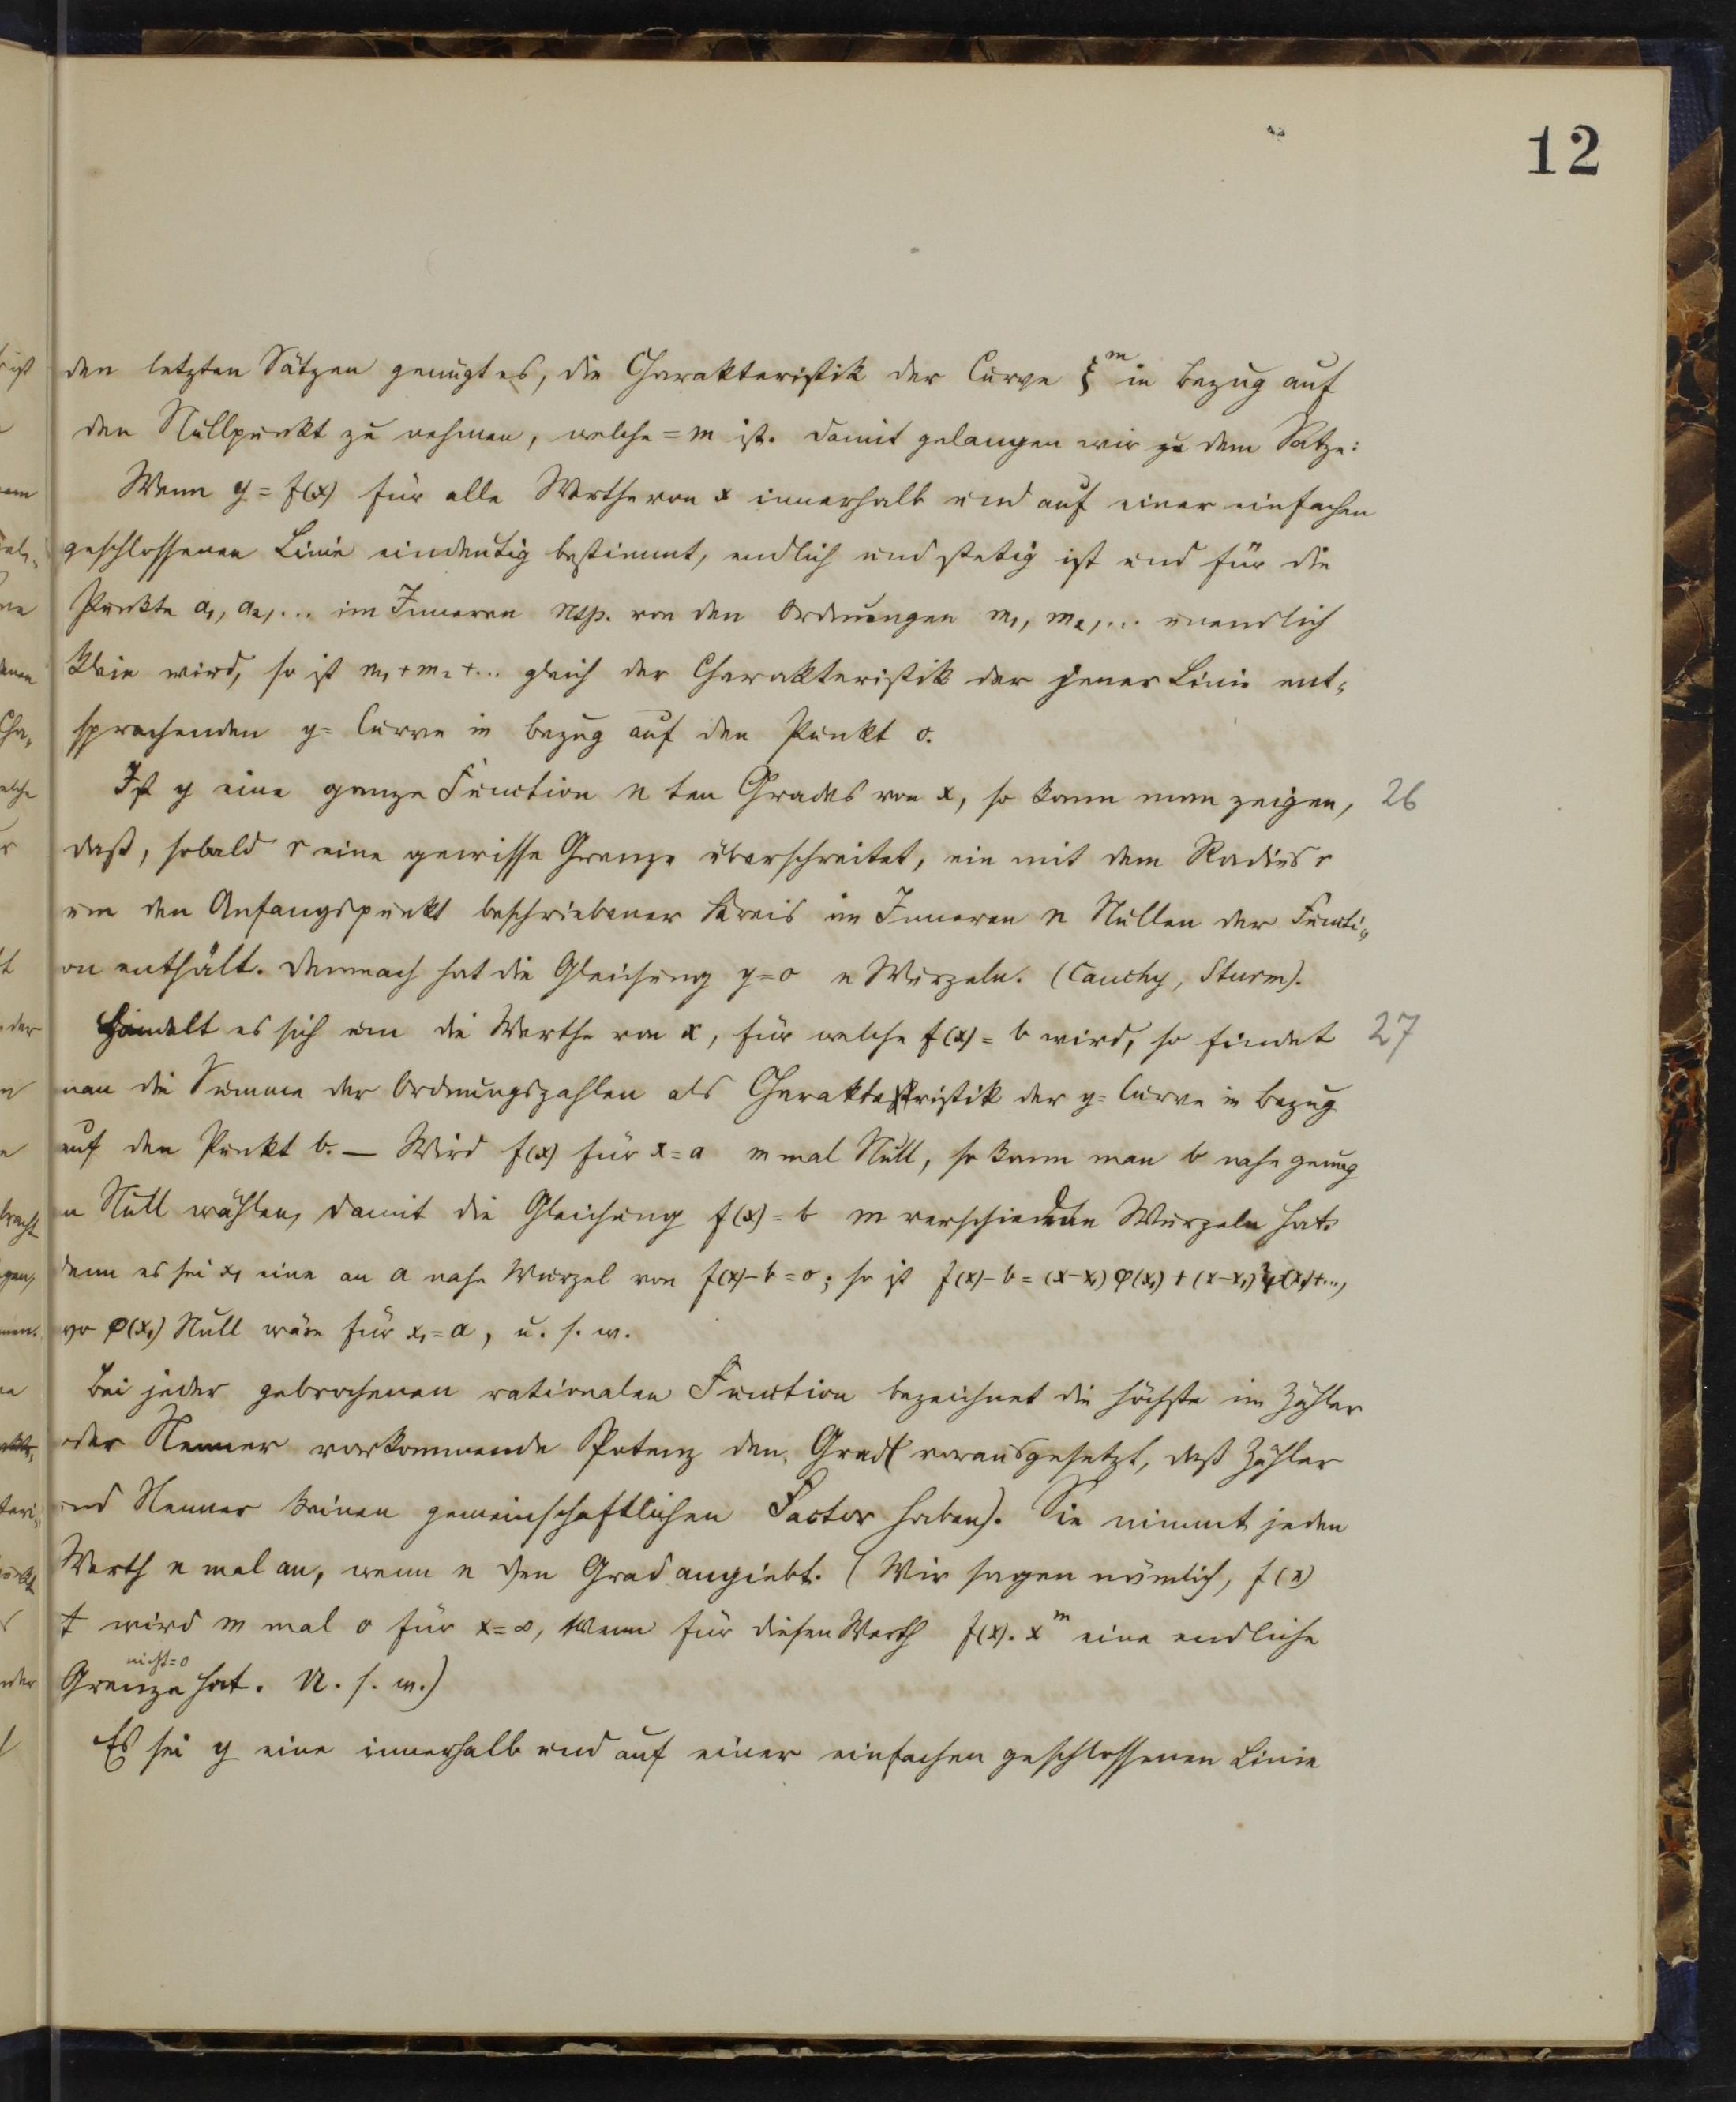 12
den letzten Sätzen genügt es, die Charakteristik der Curve ξ^m in Bezug auf
den Nullpunkt zu nehmen, welche = m ist. Damit gelangen wir zu dem Satze:
Wenn y = f(x) für alle Werthe von x innerhalb und auf einer einfachen
geschlossenen Linie eindeutig bestimmt, endlich und stetig ist und für die
Punkte a₁, a₂,... im Inneren resp. von den Ordnungen m₁, m₂,... unendlich
klein wird, so ist m₁+m₂+... gleich der Charakteristik der jener Linie ent-
sprechenden y-Curve in Bezug auf den Punkt 0.
Ist y eine ganze Function n ten Grades von x, so kann man zeigen, 26
daß, sobald r eine gewisse Grenze überschreitet, ein mit dem Radius r
um den Anfangspunkt beschriebener Kreis im Inneren n Nullen der Functi-
on enthält. Demnach hat die Gleichung y=0 n Wurzeln. (Cauchy, Sturm).
Handelt es sich um die Werthe von x, für welche f(x) = b wird, so findet 27
man die Summe der Ordnungszahlen als Charakteristik der y-Curve in Bezug
auf den Punkt b. — Wird f(x) für x=a m mal Null, so kann man b nahe genug
an Null wählen, damit die Gleichung f(x)=b m verschiedene Wurzeln hat.
Denn es sei x₁ eine an a nahe Wurzel von f(x)-b=0; so ist f(x)-b = (x-x₁) φ(x₁) + (x-x₁)² ψ(x₁)+...,
wo φ(x₁) Null wäre für x₁=a, u. s. w.
Bei jeder gebrochenen rationalen Function bezeichnet die höchste im Zähler
oder Nenner vorkommende Potenz den Grad (vorausgesetzt, daß Zähler
und Nenner keinen gemeinschaftlichen Factor haben). Sie nimmt jeden
Werth n mal an, wenn n den Grad angiebt. (Wir sagen nämlich, f(x)
wird m mal 0 für x=∞, wenn für diesen Werth f(x).x^m eine endliche
nicht=0
Grenze hat. U. s. w.)
Es sei y eine innerhalb und auf einer einfachen geschlossenen Linie